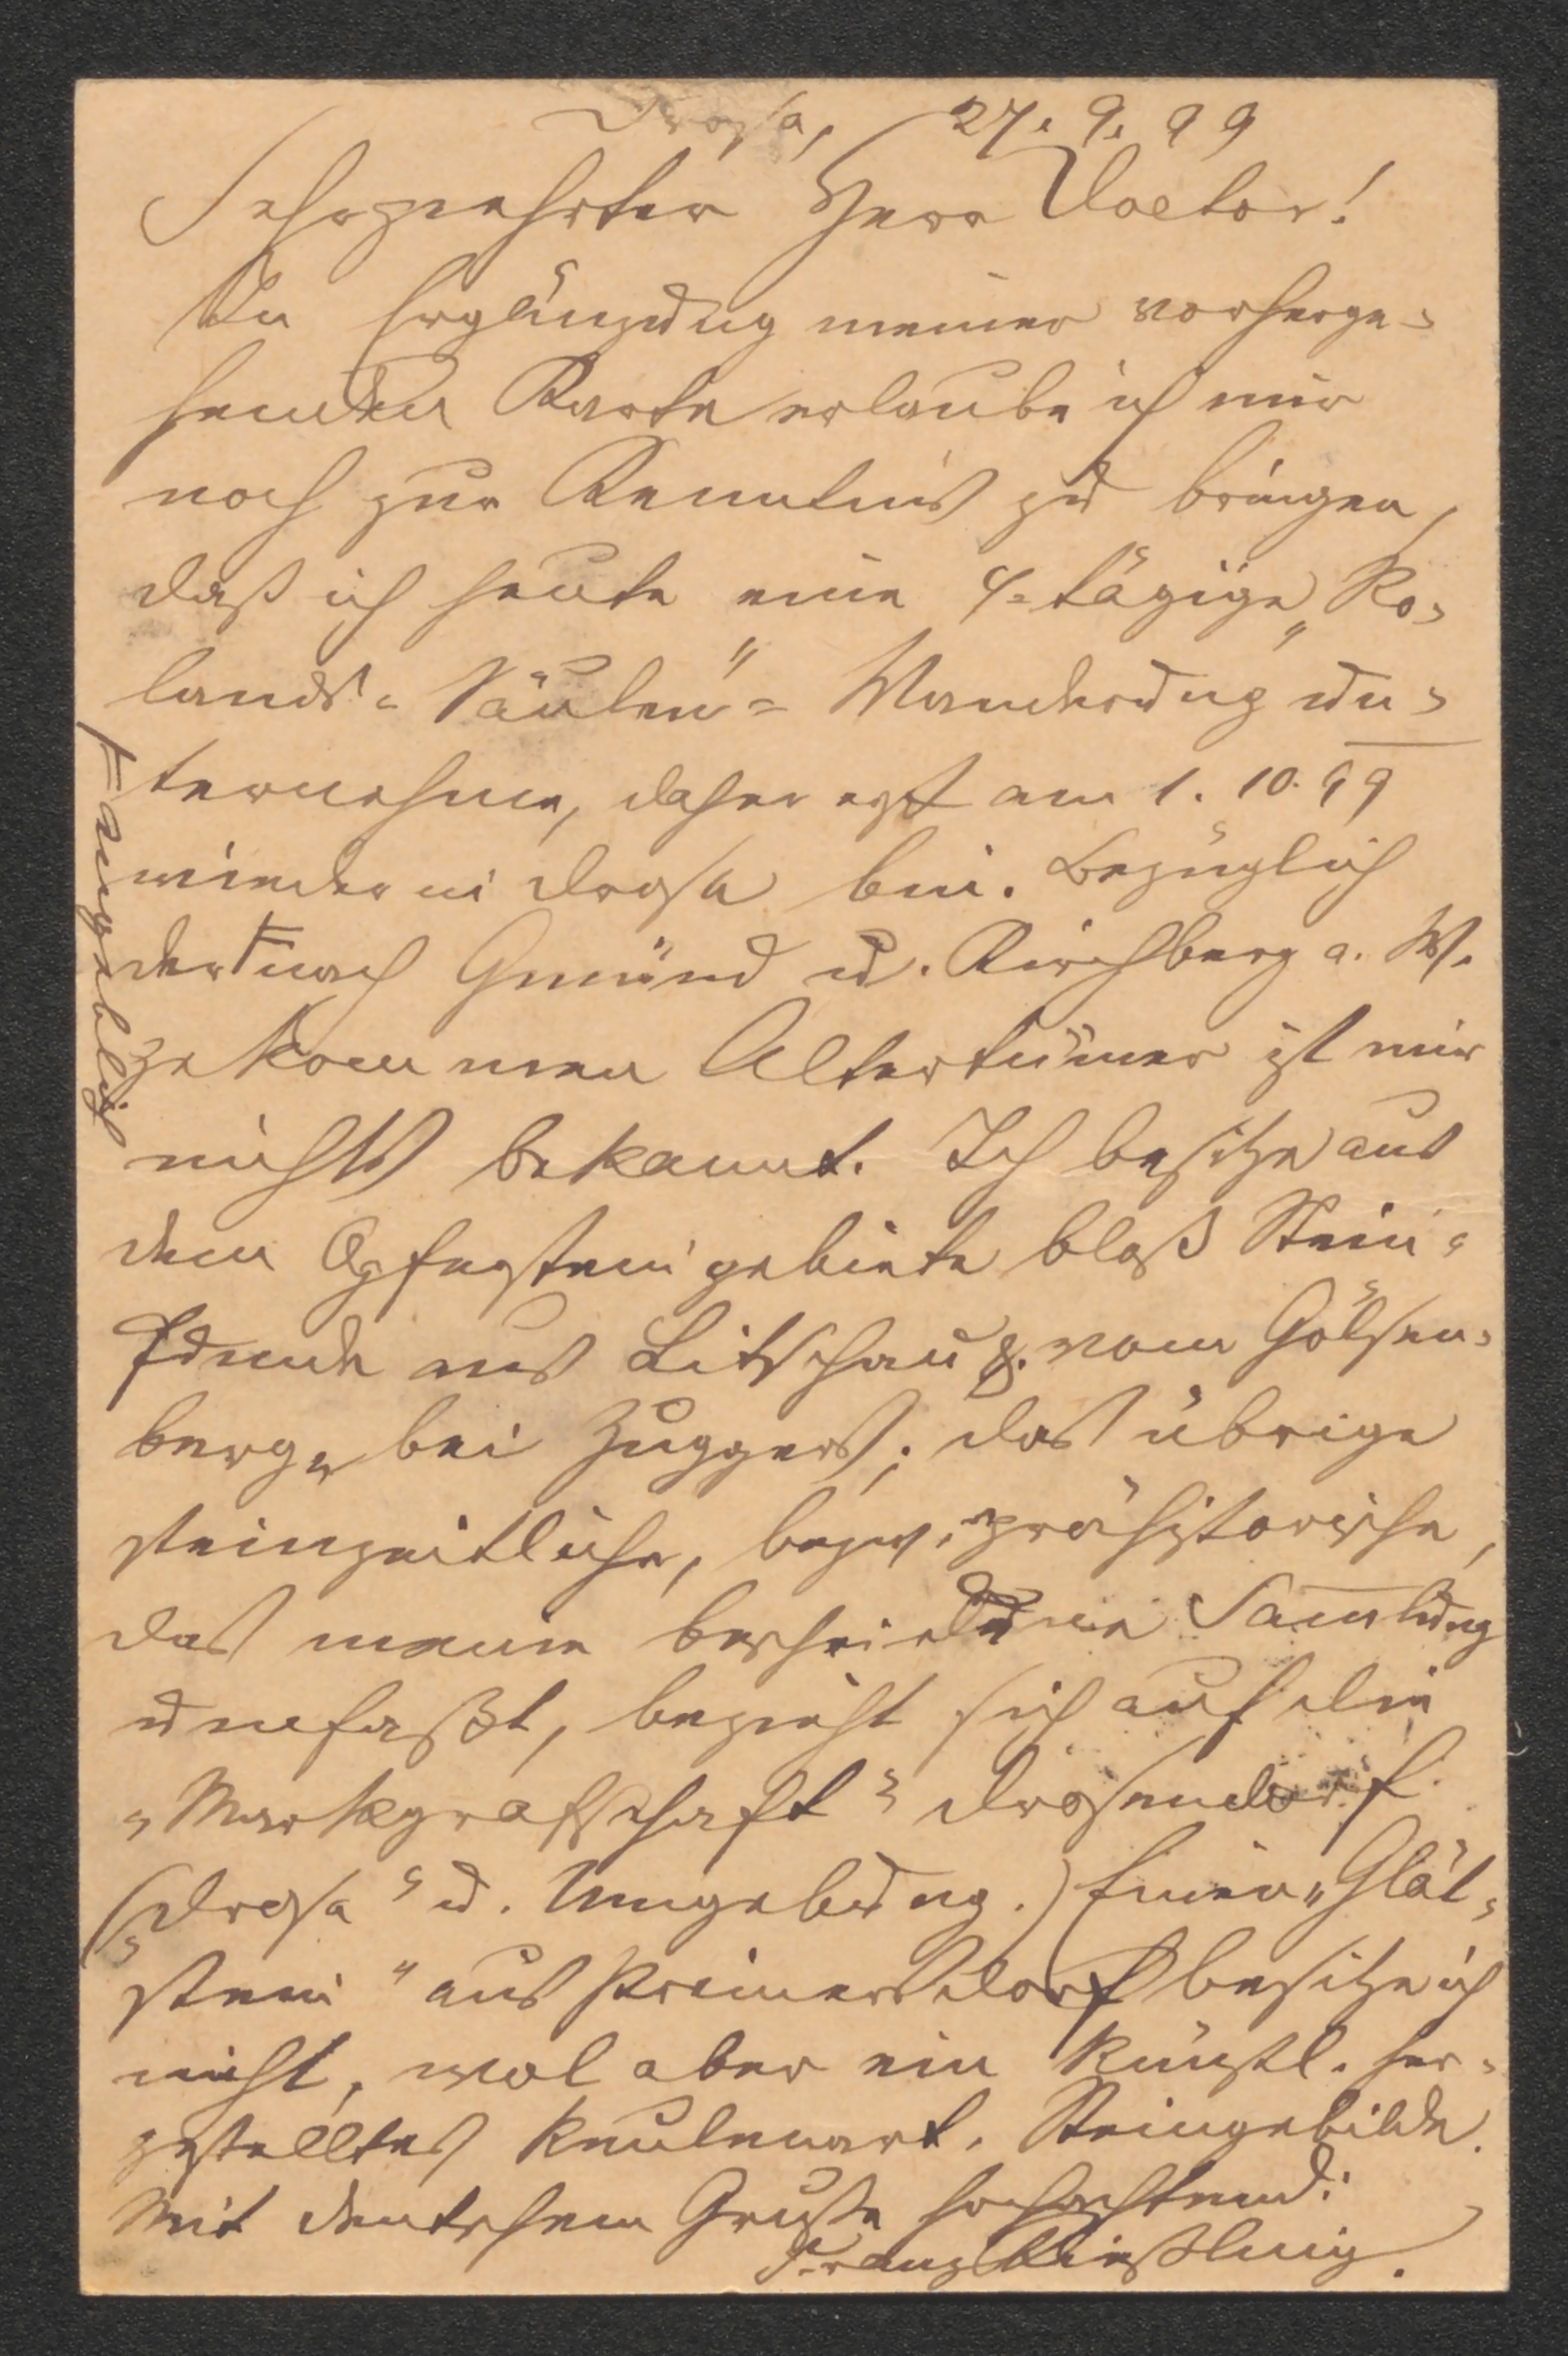 Drosa, 27. 9. 99
Sehrgeehrter Herr Doctor!
In Ergänzung meiner vorherge-
henden Karte erlaube ich mir
noch zur Kenntnis zu bringen,
daß ich heute eine 4-tägige „Ro-
lands-Säulen"-Wanderung un-
ternehme, daher erst am 1. 10. 99
wieder in Drosa bin. Bezüglich
der Ϝ nach Gmünd u. Kirchberg a. W.
Ϝ angeblich
gekommen Altertümer ist mir
nichts bekannt. Ich besitze aus
dem Opfersteingebiete bloß Stein-
funde aus Litschau u. vom Gölsen-
berge bei Zuggers; das übrige
steinzeitliche, bezw. prähistorische,
das meine bescheidene Samlung
umfaßt, bezieht sich auf die
„Markgrafschaft" Drosendorf
(„Drosa" u. Umgebung.) Einen „Glät-
stein" aus Primersdorf besitze ich
nicht, wol aber ein künstl. her-
gestelltes keulenart. Steingebilde.
Mit deutschem Gruße hochachtend:
Franz Kießling.